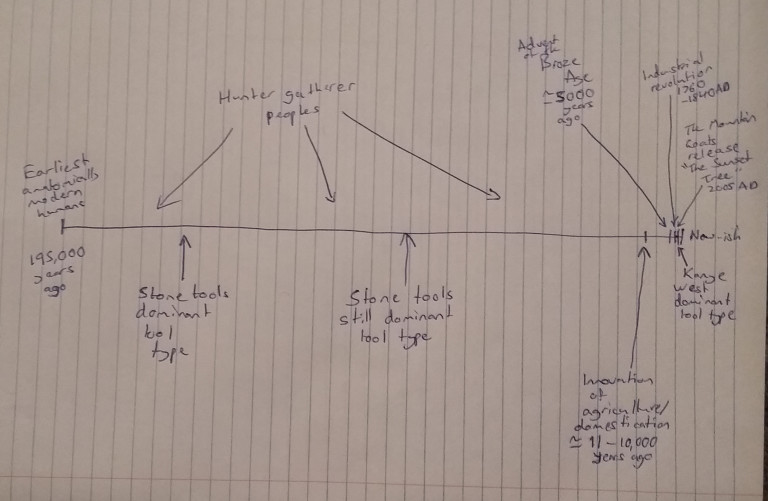 Earliest
anatomically
modern
humans
195,000
years
ago
Hunter gatherer
peoples
Stone tools
dominant
tool
type
Stone tools
still dominant
tool type
Advent
of the
Broze
Age
≃ 5000
years
ago
Innovation
of
agriculture/
domestication
≃ 11-10,000
years ago
Industrial
revolution
1760
-1840AD
The Mountain
Goats
release
"The Sunset
Tree"
2005 AD
Now-ish
Kanye
West
dominant
tool type